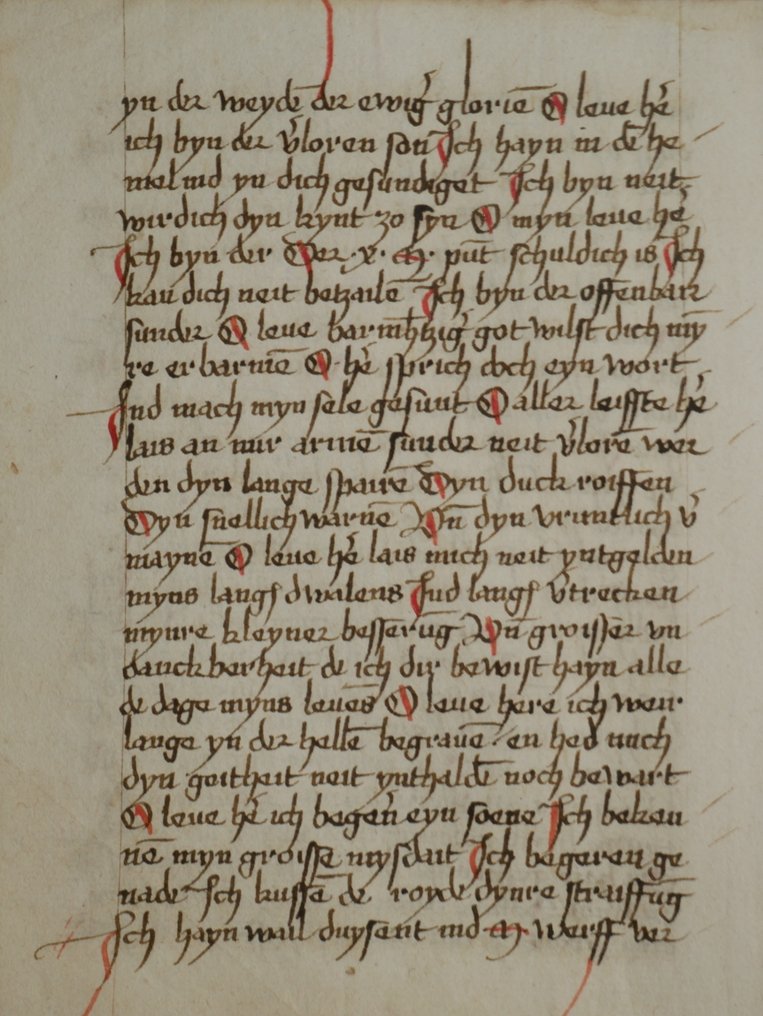 yn der weydē der ewiḡ gloriē O leue hē
ich byn der v̄loren son Ich hayn in dē he
mel ind yn dich gesundiget Ich byn neit
wirdich dyn kynt zo syn O myn leue hē
Ich byn der Der .x. M. punt schuldich is Ich
kan dich neit betzailē Ich byn der offenbair
sunder O leue barmh̄tziḡ got wilst dich my̅
re erbarmē O hē sprich doch eyn wort
Ind mach myn sele gesunt O aller leiffte hē
lais an mir armē sunder neit v̄lorē wer
den dyn lange spairē Dyn duck roiffen
Dyn snellich warnē Vn̄ dyn vruntlich v̄
maynē O leue hē lais mich neit yntgelden
myns langs dwalens Ind langs v̄trecken
mynre kleyner bessērūg Vn̄ groisser vn
danckberheit de ich dir bewist hayn alle
de dage myns leuēs O leue here ich weir
lange yn der hellē begrauē en hed mich
dyn goitheit neit ynthaldē noch bewart
O leue hē ich begerē eyn soene Ich beken
nē myn groisse mysdait Ich begeren ge
nade Ich kussē de royde dynre straiffūg
Ich hayn wail duysent ind M. werff ver